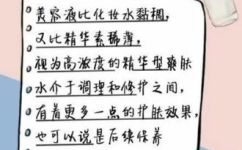 美容液比化妆水黏稠,
又比精华素稀薄,
视为高浓度的精华型爽肤
水介于调理和修护之间,
有着更多一点的护肤效果,
也可以说是后续保养